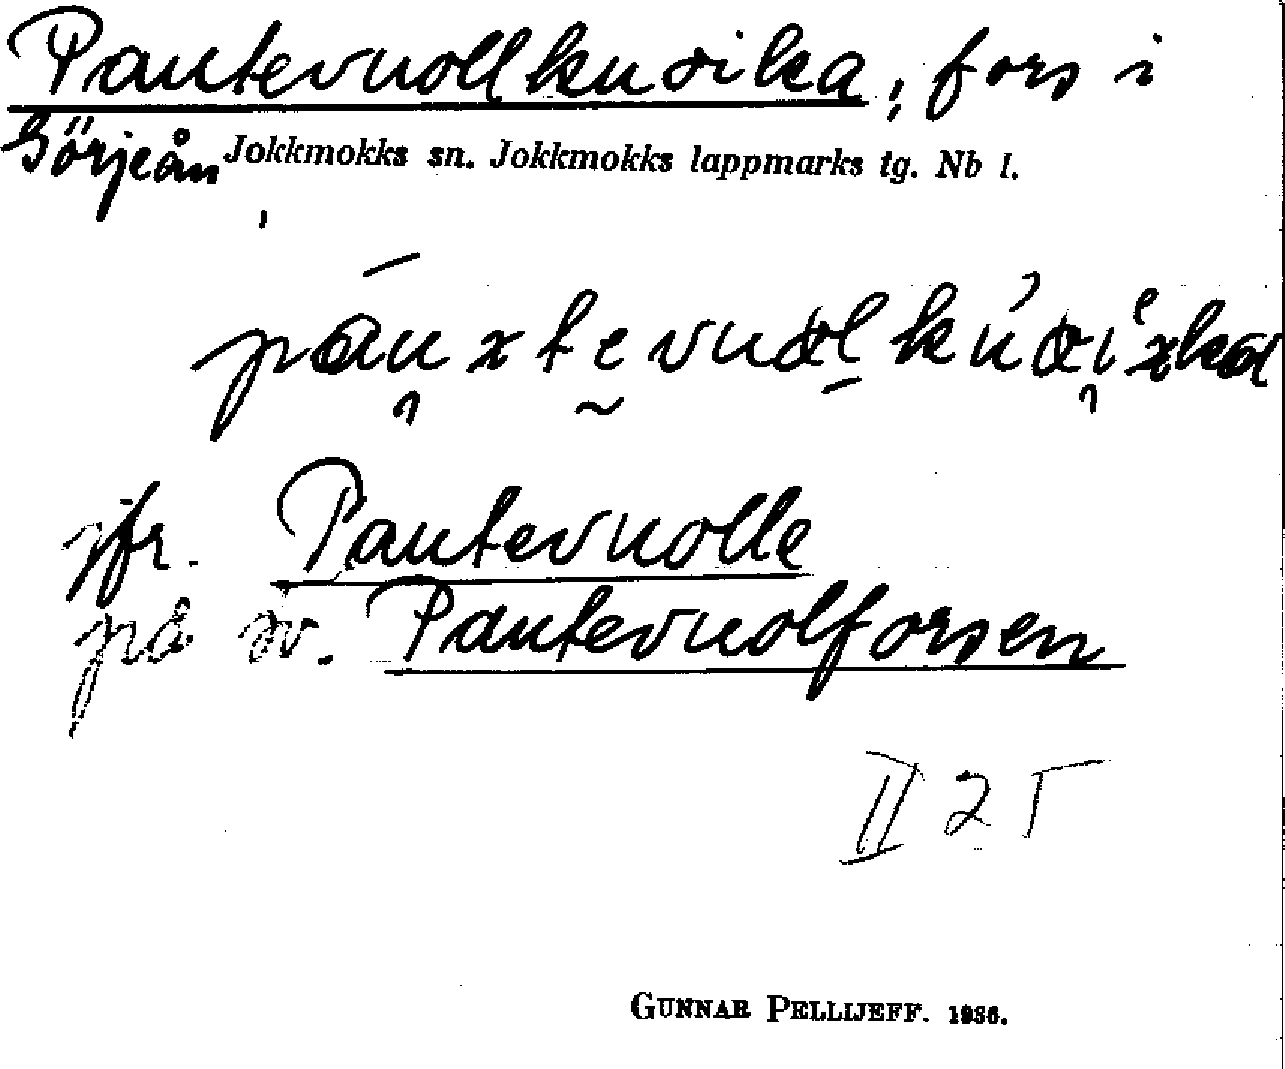 Pautevuollkuoika, fors i
Görjeån Jokkmokks sn. Jokkmokks lappmarks tg. Nb l.
jfr. Pautevuolle
på sv. Pautevuolforsen
II 2
GUNNAR PELLIJEFF. 1956.